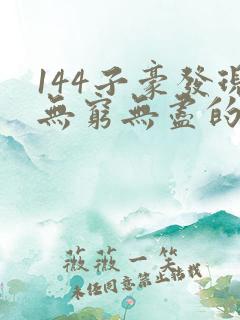 144子豪發現
無窮無盡的
薇薇一笑
未任同意禁止轉載